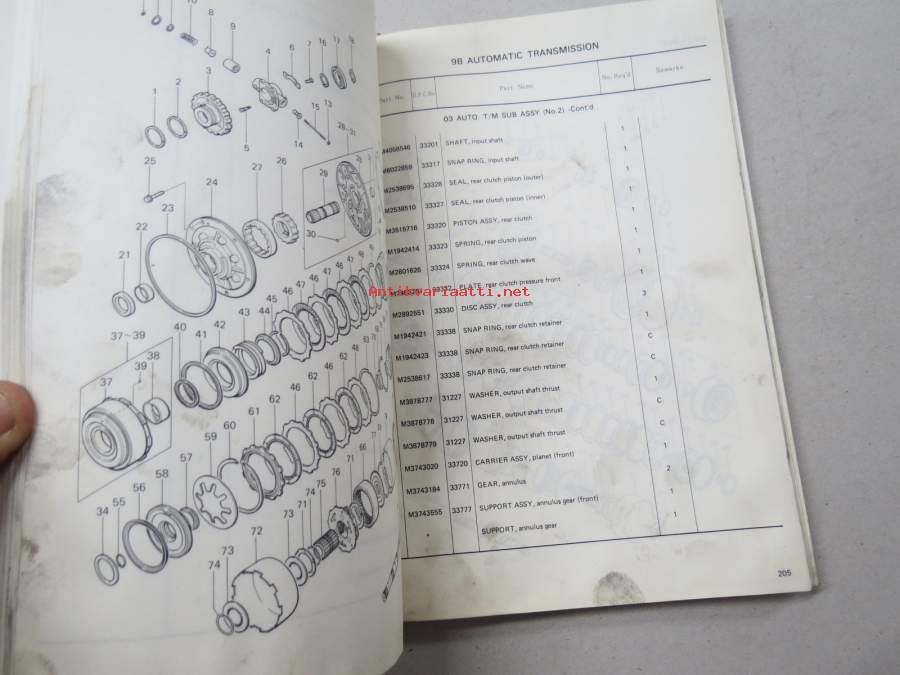 9B AUTOMATIC TRANSMISSION
Part No. Part Name No. Req'd Remarks
03 AUTO. T/M SUB ASSY (No.2) -Cont'd
33201 SHAFT, input shaft 1
33317 SNAP RING, input shaft 1
M2538695 33328 SEAL, rear clutch piston (outer) 1
M2538510 33327 SEAL, rear clutch piston (inner) 1
M3515716 33320 PISTON ASSY, rear clutch 1
M1942414 33323 SPRING, rear clutch piston 1
M2801626 33324 SPRING, rear clutch wave 1
PLATE, rear clutch pressure front 1
M2892551 33330 DISC ASSY, rear clutch 3
M1942421 33338 SNAP RING, rear clutch retainer 1
M1942423 33338 SNAP RING, rear clutch retainer C
M2538617 33338 SNAP RING, rear clutch retainer C
M3878777 31227 WASHER, output shaft thrust 1
M3878778 31227 WASHER, output shaft thrust C
M3878779 31227 WASHER, output shaft thrust C
M3743020 33720 CARRIER ASSY, planet (front) 1
M3743184 33771 GEAR, annulus 2
M3743555 33777 SUPPORT ASSY, annulus gear (front) 1
SUPPORT, annulus gear 1
205
Antikvariaatti.net
8
9
1
2
3
4
6
7
16
17
5
14
15
13
25
23
24
27
26
28~31
29
30
21
22
37~39
37
39
38
40
41
42
43
44
45
46
47
46
47
46
47
46
61
62
46
62
46
62
46
62
59
60
34
55
56
58
57
72
73
71
74
75
76
71
66
74
73